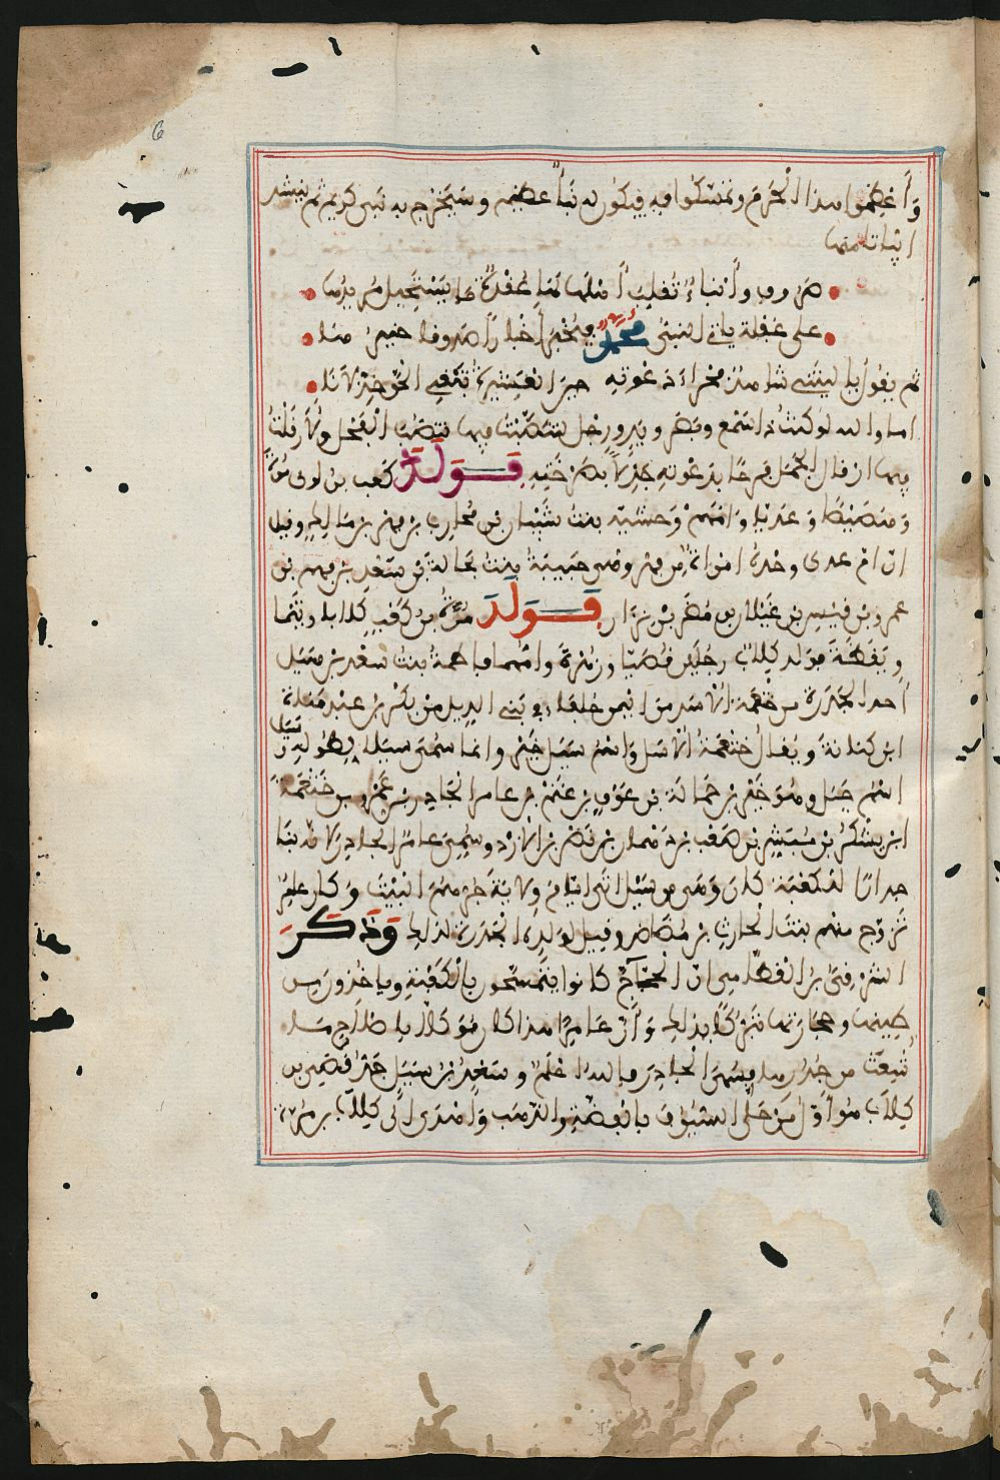 6
وَأَعْظِمُوا هذا الْحَرَمَ وتمسّكوا به فيكون له نبأٌ عظيم وسيخرج به نبي كريم ثم ينشد
ابياتا منها
صروف وأنباءٌ تُغلِّب أهلها لها عُقَدٌ ما يستحيل مريرها
على غفلة ياتي النبيُّ محمّد فيخبر أخبارًا صدوقا خبيرها
ثم يقول يا ليتني شاهد فحواء دعوته حين العشيرة تبغي الحق خذلانا
اما والله لو كنت ذا سمع وبصر ويد ورجل لتنصّبت فيها تنصّب الفحل ولأرقلت
فيها ارقال الجمل فرحًا بدعوته جذلًا بصرخته فولد كعب بن لوى مُرّة
وهصيصا وعديا وامهم وحشية بنت شيبان بن محارب بن فهر بن مالك وقيل
ان ام عدى وحده امراة من فهم وهي حبيبة بنت بجالة بن سعد بن فهم بن
عمرو بن قيس بن عيلان بن مضر بن نزار فولد مُرّة بن كعب كلابا وتيما
ويقظة فولد كلاب رجلين قصيّا وزهرة وامهما فاطمة بنت سعد بن سيل
أحد الجدرة من خثعمة الاسد من اليمن حلفاء في بني الديل من بكر بن عبد مناة
ابن كنانة ويقال خثعمة الاسل واسم سيل خير وانما سمي سيلا لطوله
اسم جبل وهو خير بن حمالة بن عوف بن غنم بن عامر الجادر بن عمرو بن خثعمة
ابن يشكر بن مبشر بن صعب بن دهمان بن نصر بن الازد وسمي عامر الجادر لانه بنا
جدارا للكعبة كان وهي من سيل اتى ايام ولاية جرهم البيت وكان عامر
تزوج منهم بنت الحارث بن مضاض وقيل لولده الجدرة لذلك وَذَكَرَ
الشرقي بن القطامي ان الحاجّ كانوا يتمسحون بالكعبة وياخذون من
طيبها وحجارتها تبركًا بذلك وأن عامرا هذا كان موكلا باصلاح ما
شعث من جدرها فسمي الجادر والله اعلم وسعد بن سيل جد قصي بن
كلاب هو اول من حلى السيوف بالفضة والذهب واهدى الى كلاب بن مرة